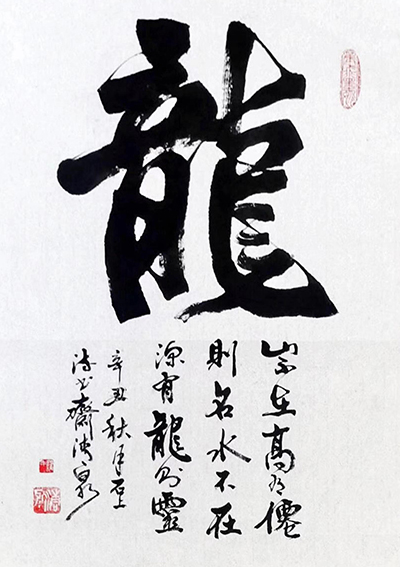 龍
山不在高有僊
則名水不在
深有龍則靈
辛丑秋月石上
流书齋清泉